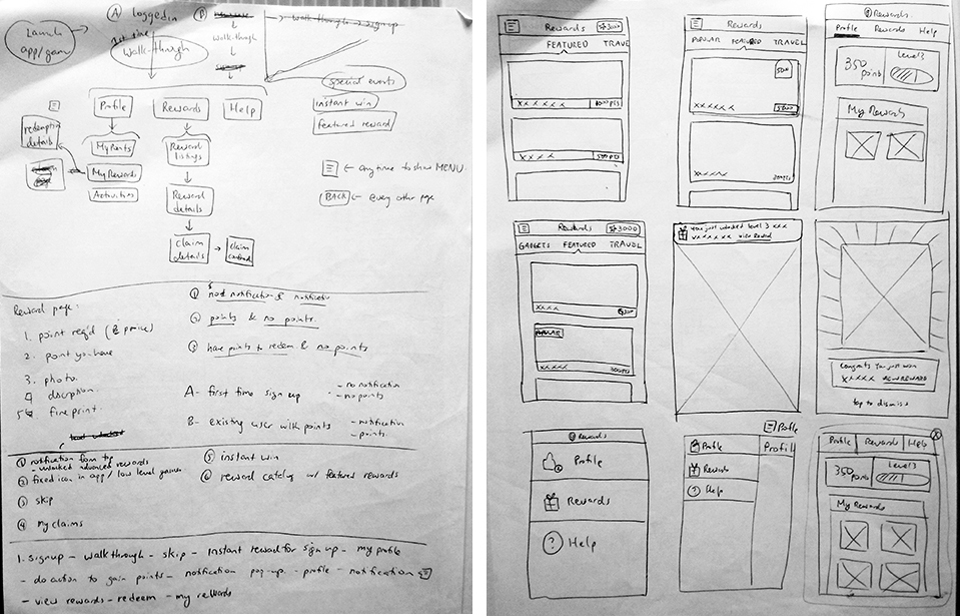 Launch
app/game
A loggedin
B
walkthrough → signup
1st time
walkthrough
walkthrough
special events
instant win
featured reward
Profile
Rewards
Help
redemption
details
My Points
Reward
listings
My Rewards
Activities
Reward
details
claim
details
claim
← any time to show MENU
BACK ← Every other page
Reward page:
1. point req'd
2. point you have
3. photo
4 discription
5 fine print
① notification & notification
② points & no points
③ have points to redeem & no points
A - first time sign up
- no notification
- no points
B - existing user with points
- notification
- points
① notification from top
- unlocked advanced rewards
② fixed icon in app / low level games
③ skip
④ my claims
⑤ instant win
⑥ reward catalog w/ featured rewards
1. signup - walkthrough - skip - instant reward for sign up - my profile
- do action to gain points - notification pop-up - profile - notification
- view rewards - redeem - my rewards
Rewards 3000
FEATURED TRAVEL
XXXXX 8000PTS
XXXX 500PTS
Rewards
POPULAR FEATURED TRAVEL
XXXXX
XXXXX
Rewards
Profile Rewards Help
350
points
Level 3
My Rewards
Rewards 3000
GADGETS FEATURED TRAVEL
XXXX
POPULAR
You just unlocked level 3 xxx
xxxxxx view Reward
Congrats You just won
XXXXX VIEW REWARD
tap to dismiss
Rewards
Profile
Rewards
Help
Profile
Profile
Rewards
Help
Profile
Profile Rewards Help X
350
points
Level 3
My Rewards